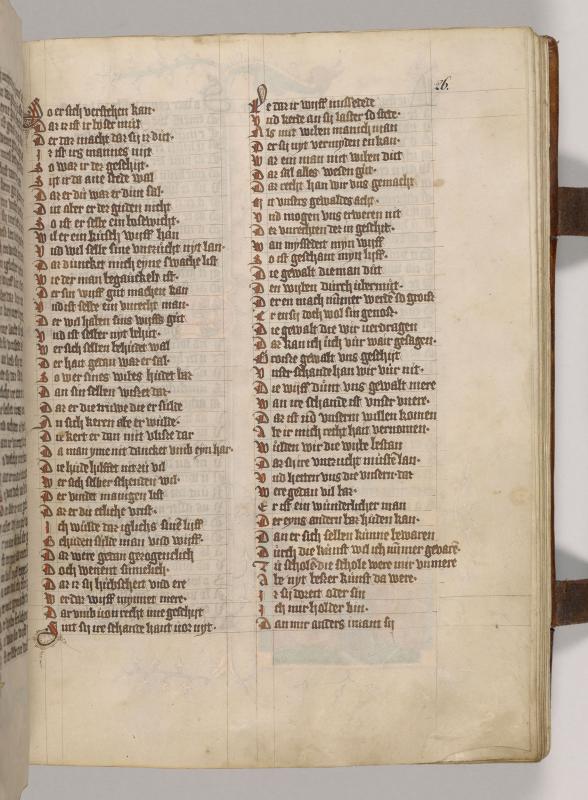 26.
So er sich versehen kan·
Dar er ist ir boser mut
Der dar macht dar sy ir dut·
Ir ist irs mannes nyt
So war ir der geschyt·
Syt ir da aüe stede wal
Dar er dü war er dünt sal·
Düt aber er der guden nicht
So ist er selbe ein bosewicht·
Wil er ein küsch wyff han
Und wil selbe sine unzucht nyt lan·
Dar duncket mich eyme swache list
Wie der man begaückelt ist·
Der sin wyff gut machen kan
Und ist selbe ein unrecht man·
Der wil haben sins wyffs gut
Und ist selber nyt behüt·
Wer sich selben behüdet wal
Der hait getan war er sal·
So wer sines wibes hüdet bar
An sin selben wysset dar·
Dar er die truwe die er solde
An sich keren abe er wulde·
Die kert er dan mit vlyse dar
Da man yme nit dancket umb eyn har·
Die hude hilffet nit zü vil
Wer sich selber schenden wil·
Der vindet manigen list
Dar er die etliche vrist·
Ich wulde dar iglichs sine lyff
Beiden solde man und wyff·
Dar were getan gezogenclich
Doch werent sumelich·
Dar ir sy hubscheit und ere
Wer dar wyff nymmet mere·
Dar umb von recht ime geschyt
Sint sy ire schande hant vor nyt·
We dar ir wyff missedede
Und rede an sy laster so stede·
Als mit wiben manich man
Der sy nyt vermyden en kan·
War ein man mit wiben düt
Dar sal alles wesen gut·
Dar recht han wir uns gemacht
Mit unsers gewaldes acht·
Und mogen uns erweren nit
Der unrechten der in geschyt·
Wan myssedet myn wyff
So ist geschant myn lyff·
Die gewalt die man düt
Den wyben durch übermut·
Der en mach nümer werde so groiß
Er en sy doch wol sin genoß·
Die gewalt die wir verdragen
Dar kan ich üch vür wair gesagen·
Groiße gewalt uns geschyt
Unser schande han wir vür nit·
Die wyff dünt uns gewalt mere
Wan ire schande ist unser unere·
Dar ist und unserm willen komen
Abe ir mich recht hait vernomen·
Wüsden wir die wybe bestan
Dar sy ire unzucht müsten lan·
Und hetten uns die unsern dar
Were getan vil bar·
Er ist ein wunderlicher man
Der eyns andern bar hüden kan·
Dan er sich selben künne bewaren
Durch die kunst wil ich nümmer gevarē·
Zü scholē die schole were mir unmere
Abe nyt besser kunst da were·
Ir sy doreit oder sin
Ich mir holder bin·
Dan mir anders iemant sy